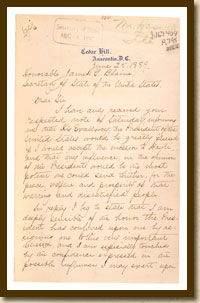 Cedar Hill,
Anacostia, D.C.
June 25, 1889
Honorable James G. Blaine
Secretary of State of the United States.
Dear Sir:
I have duly received your
respected note of Saturday, informing
me that His Excellency the President of the
United States would be greatly pleased
if I would accept the mission to Hayti
and that my influence, in the opinion
of the President would be the most
potent we could send thither, for the
peace welfare and prosperity of that
warring and dissatisfied people.
In reply I have to state that I am
deeply sensible of the honor the Pres-
ident has conferred upon me by as-
signing me to this very important
mission and I am especially touched
by his confidence expressed in the
possible influence I may exert upon